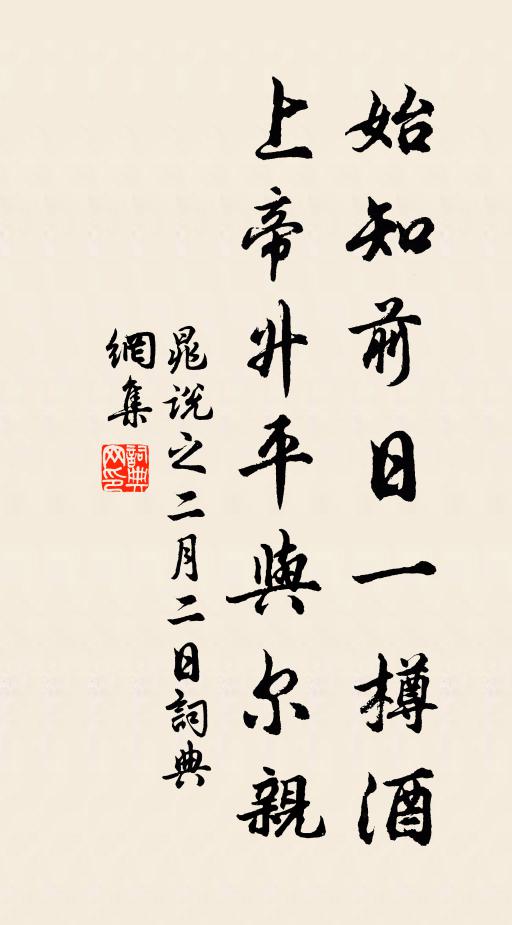 始知前日一樽酒
上帝升平與尔親
晁說之二月二日詞典
網集
詞典
网印